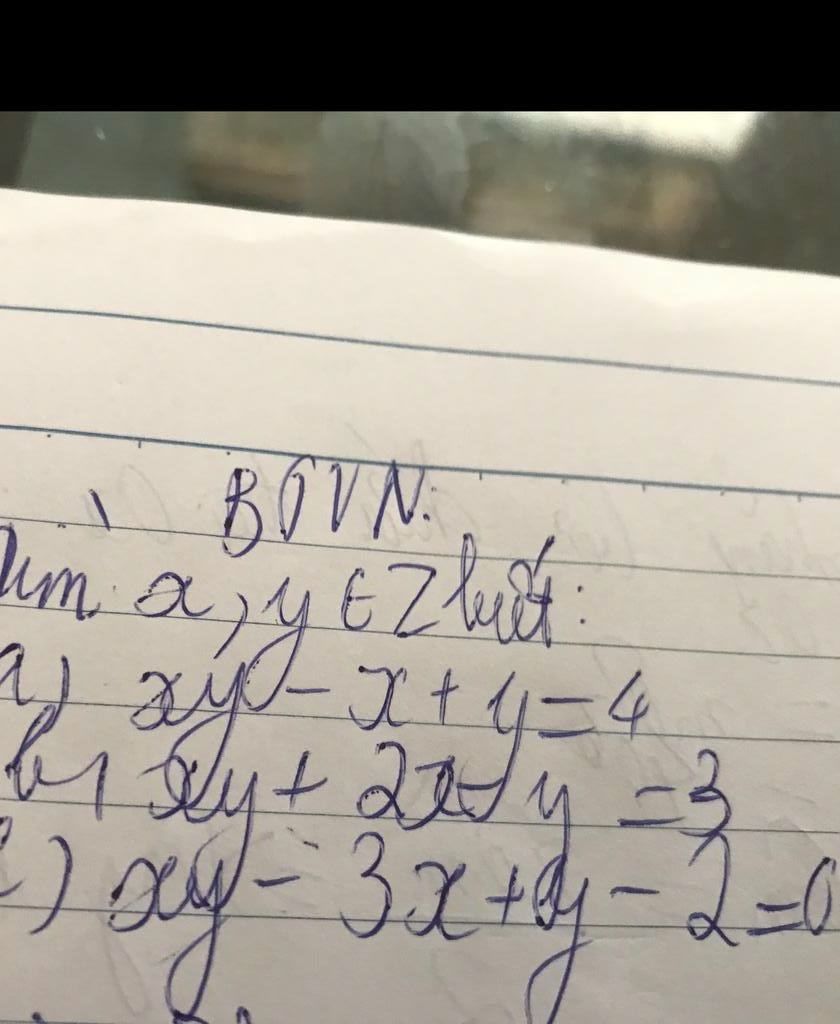 BTVN:
Tìm x, y ∈ Z biết:
a) xy - x + y = 4
b) xy + 2x - y = 3
c) xy - 3x + y - 2 = 0